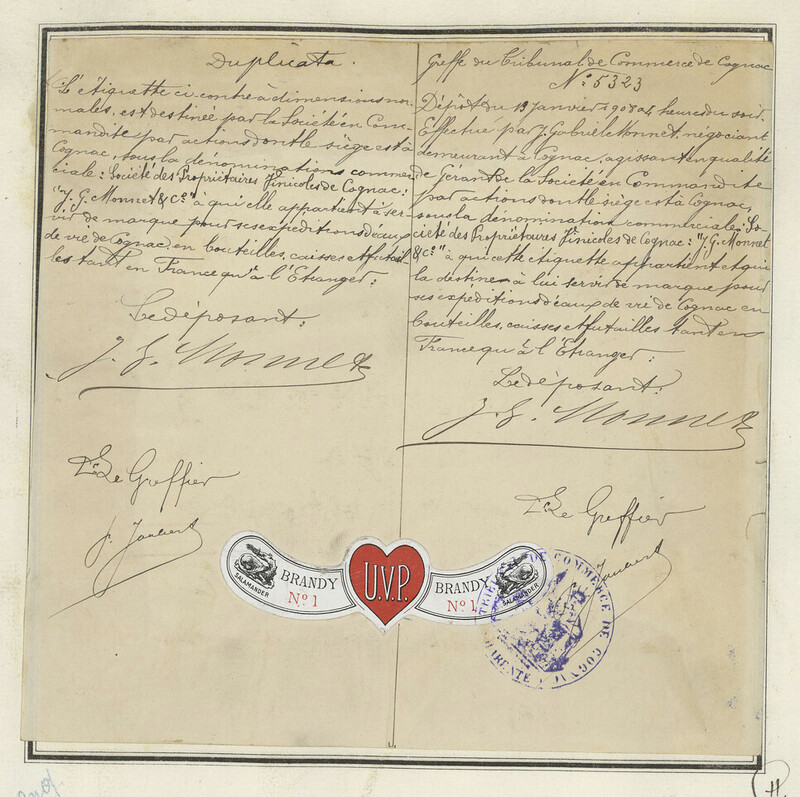 Duplicata.
L'étiquette ci-contre à dimensions nor-
males, est destinée par la Société en Com-
mandite par actions dont le siège est à
Cognac, sous la dénominations commer-
ciale: Société des Propriétaires Vinicoles de Cognac:
"J. G. Monnet & Cº" à qui elle appartient à ser-
vir de marque pour ses expéditions d'eaux
de vie de Cognac, en bouteilles, caisses et futail-
les tant en France qu'à l'Etranger:
Le déposant:
J. G. Monnet
Le Greffier
Greffe du Tribunal de Commerce de Cognac
Nº 5323
Dépôt du 13 janvier 1908 à 4 heures du soir.
Effectué par J. Gabriel Monnet, négociant
demeurant à Cognac, agissant en qualité
de Gérant de la Société en Commandite
par actions dont le siège est à Cognac,
sous la dénomination commerciale: So-
ciété des Propriétaires Vinicoles de Cognac: "J. G. Monnet
& Cº" à qui cette étiquette appartient et qui
la destine à lui servir de marque pour
ses expéditions d'eaux de vie de Cognac en
bouteilles, caisses et futailles tant en
France qu'à l'Etranger:
Le déposant:
J. G. Monnet
Le Greffier
SALAMANDER
BRANDY
Nº 1
U.V.P.
BRANDY
Nº 1
SALAMANDER
DE COMMERCE DE COGNAC
CHARENTE